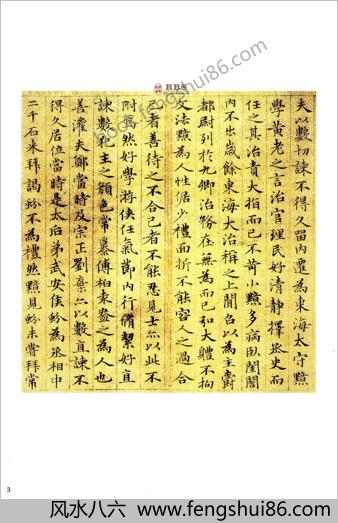 BBS
夫以數切諫不得久留内遷為東海太守黯
學黃老之言治官理民好清靜擇丞史而
任之其治責大指而已不苛小黯多病臥閨閤
内不出歲餘東海大治稱之上聞召以為主爵
都尉列於九卿治務在無為而已弘大體不拘
文法黯為人性倨少禮面折不能容人之過合
己者善待之不合己者不能忍見士亦以此不
附焉然好學游俠任氣節内行脩絜好直
諫數犯主之顏色常慕傅柏袁盎之為人也
善灌夫鄭當時及宗正劉棄亦以數直諫不
得久居位當時是太后弟武安侯蚡為丞相中
二千石来拜謁蚡不為禮然黯見蚡未嘗拜常
3
风水八六 www.fengshui86.com